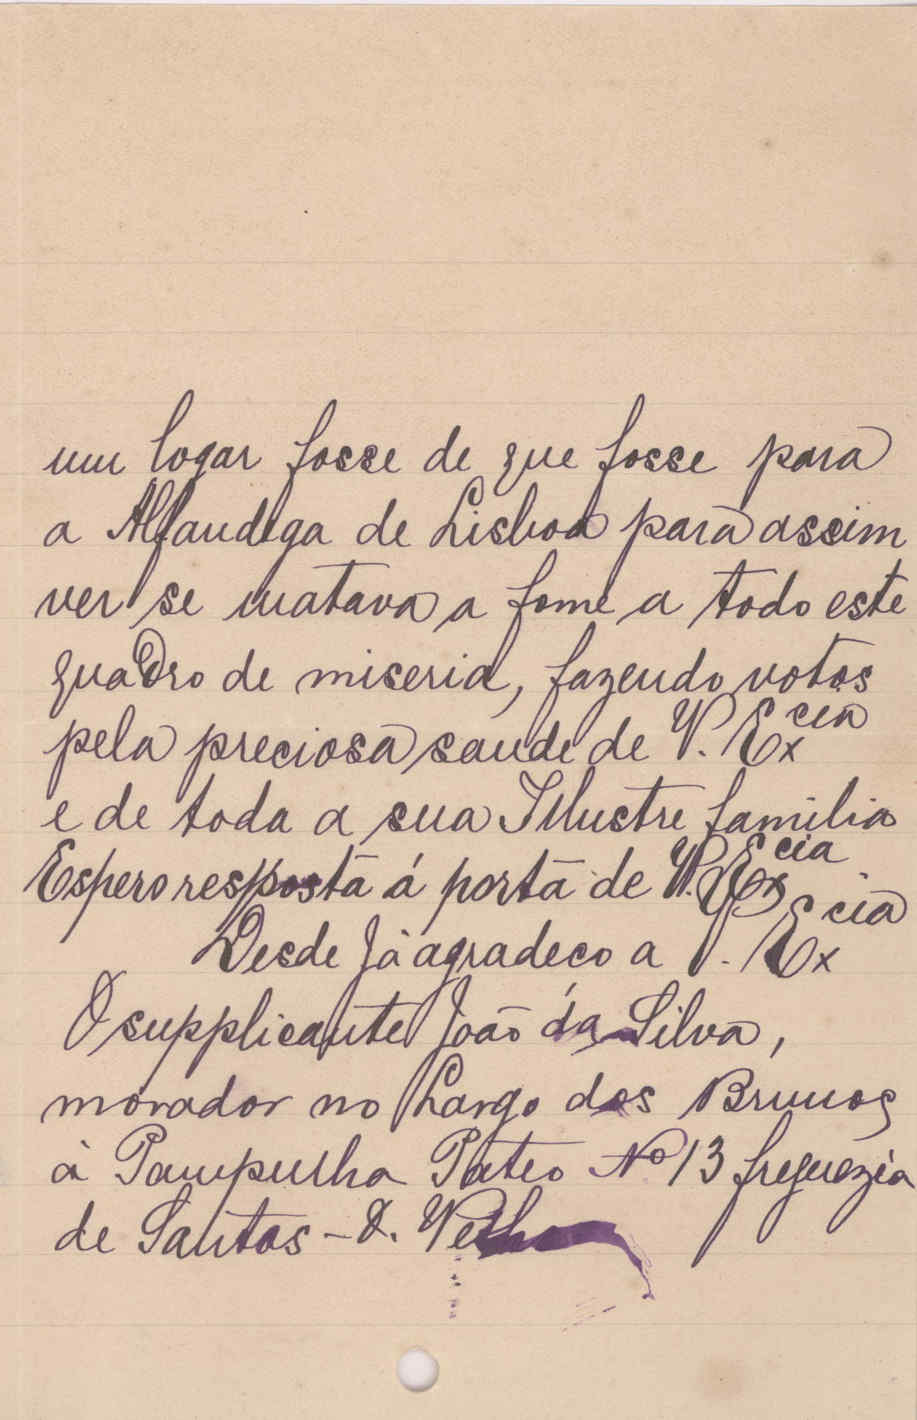 um logar fosse de que fosse para
a Alfandega de Lisboa para assim
ver se matava a fome a todo este
quadro de miseria, fazendo votos
pela preciosa saude de V. Ex^cia
e de toda a sua Illustre familia
Espero resposta á porta de V. Ex^cia
Desde já agradeco a V. Ex^cia
O supplicante João da Silva,
morador no Largo dos Brunos
á Pampulha Pateo Nº 13 freguezia
de Santos-O. Velho